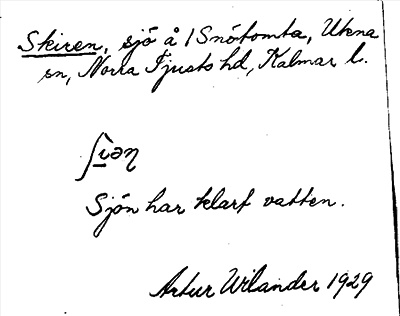 Skiren, sjö å 1 Snötomta, Ukna
sn, Norra Tjusts hd, Kalmar l.
ʃìən
Sjön har klart vatten.
Artur Wilander 1929